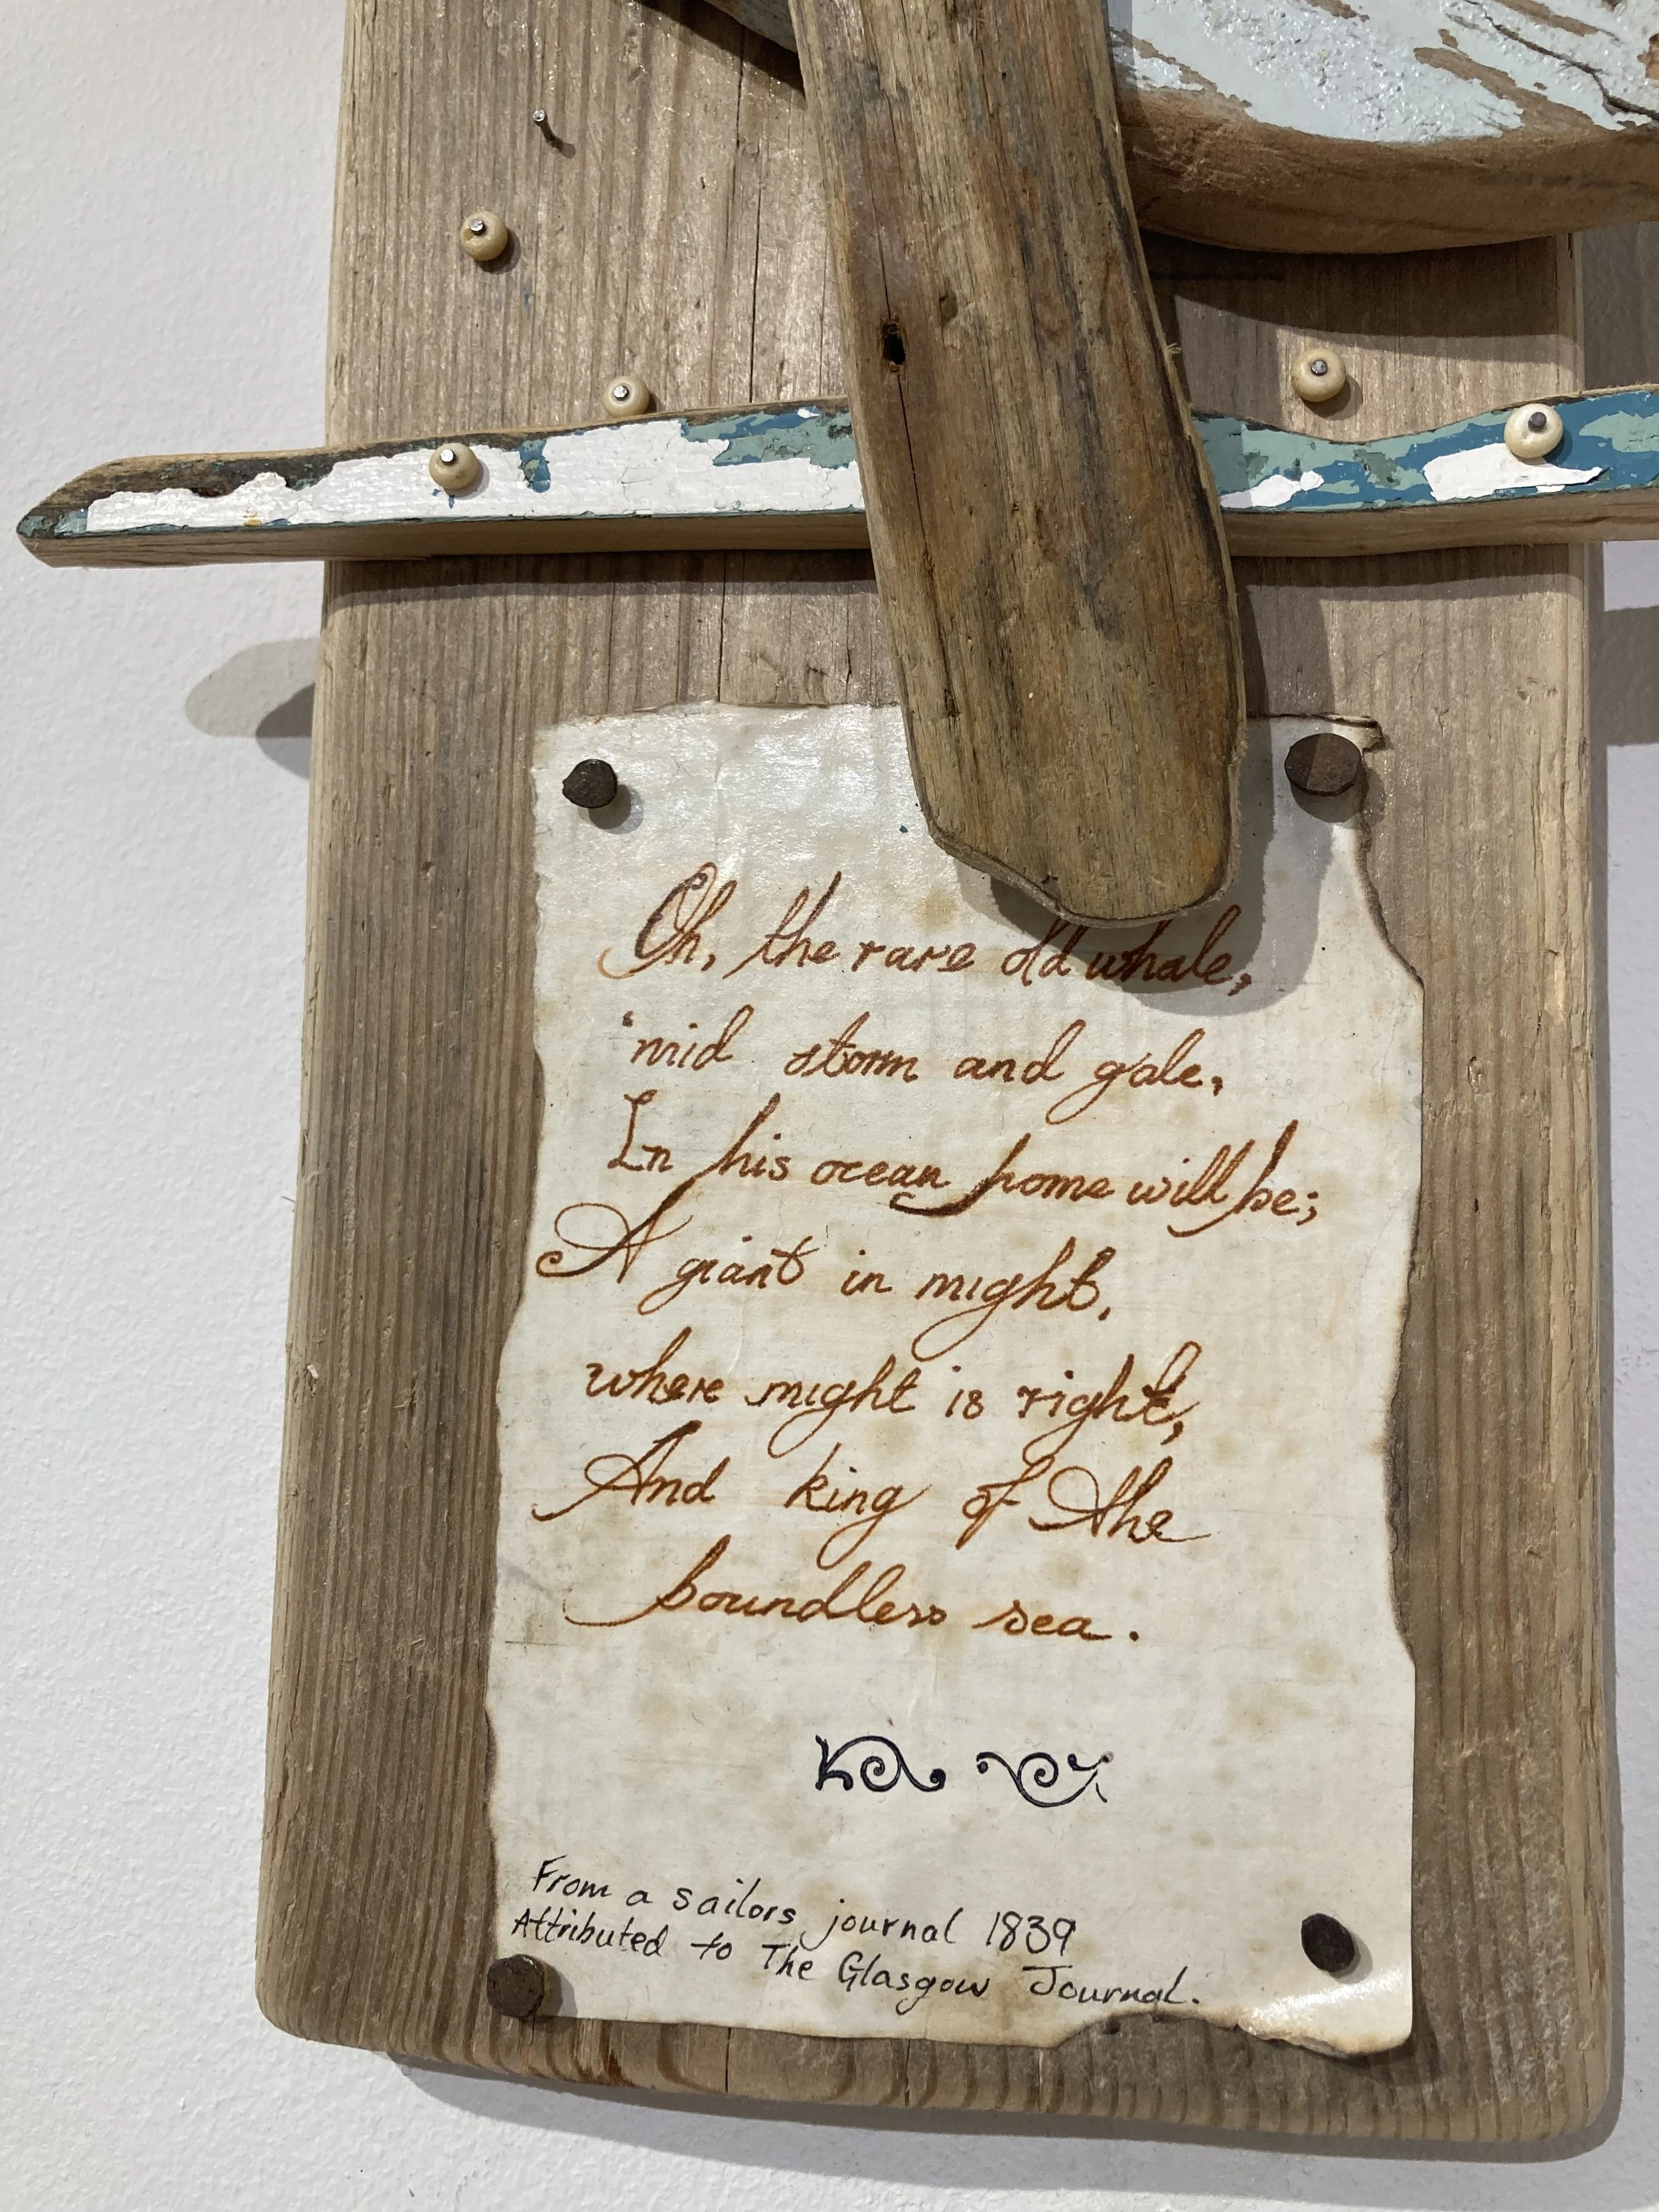 Oh, the rare old whale,
'mid storm and gale,
In his ocean home will be;
A giant in might,
where might is right,
And king of the
boundless sea.
From a sailors journal 1839
Attributed to The Glasgow Journal.